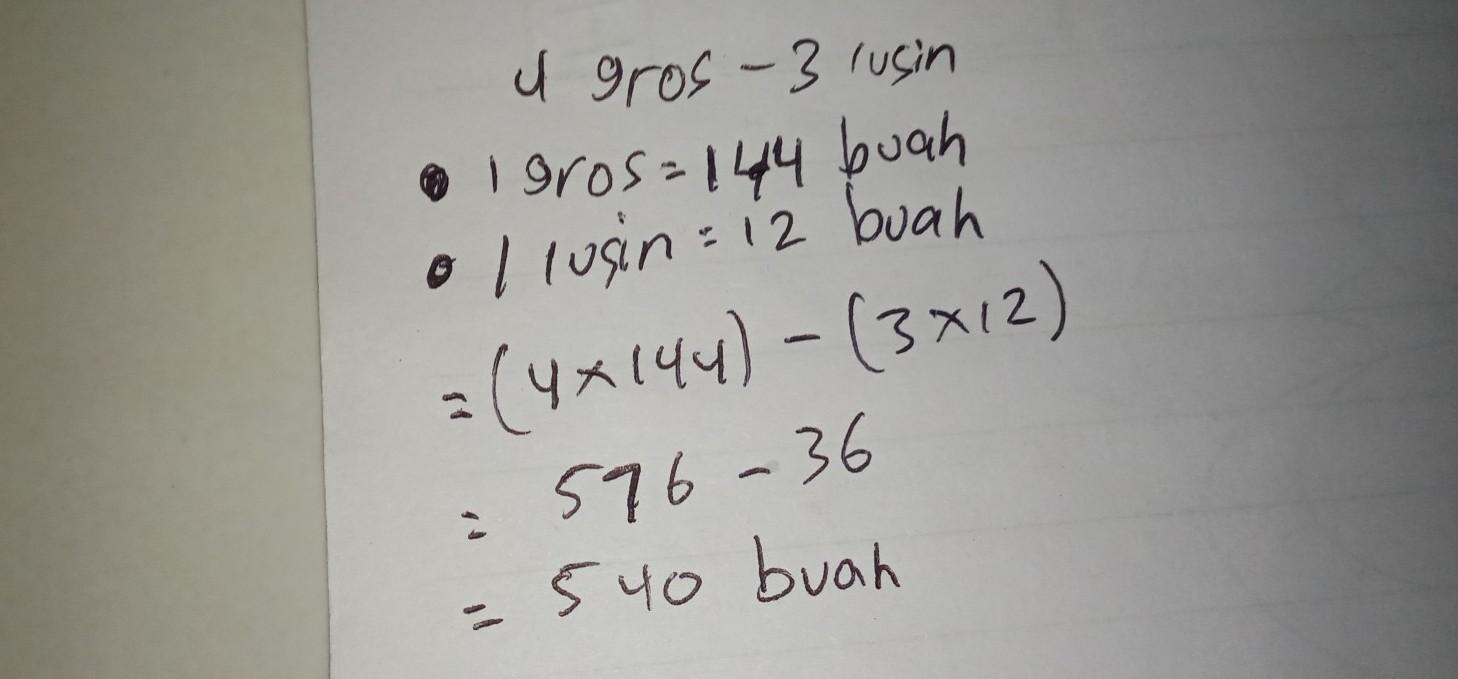 4 gros - 3 lusin
• 1 gros = 144 buah
• 1 lusin = 12 buah
= (4 x 144) - (3 x 12)
= 576 - 36
= 540 buah